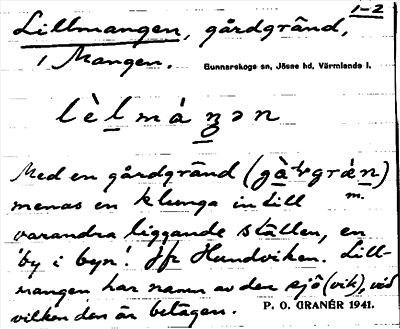 1-2
Lillmangen, gårdgränd,
i Mangen.
Gunnarskogs sn, Jösse hd, Värmlands l.
lèlmáŋən
Med en gårdgränd (gà'ɽgrǽn)
m.
menas en klunga intill
varandra liggande ställen, en
'by i byn'. Jfr Hundviken. Lill-
mangen har namn av den sjö (vik), vid
vilken den är belägen.
P. O. GRANÉR 1941.